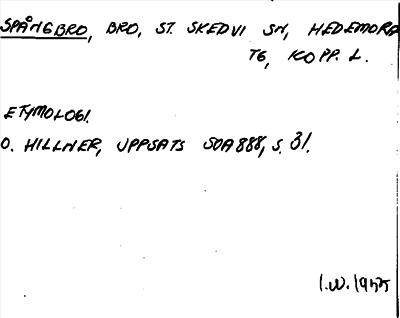 SPÅNGBRO, BRO, ST. SKEDVI SN, HEDEMORA
TG, KOPP. L.
ETYMOLOGI.
O. HILLNER, UPPSATS SOA 888, S. 31.
I.W. 1955